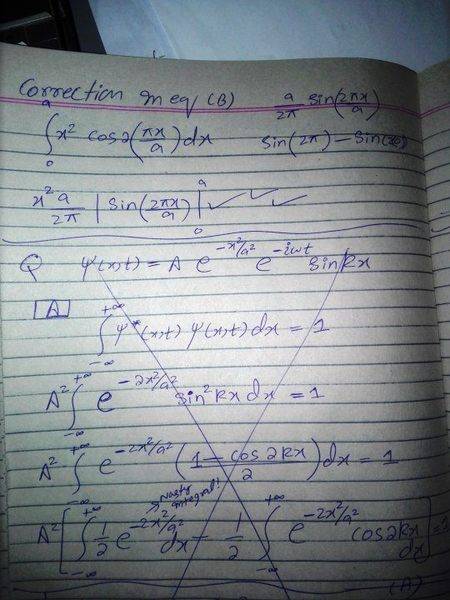 Correction in eq (B) a/2π sin(2πx/a)
∫₀ᵃ x² cos2(πx/a)dx sin(2π) – sin(
x²a/2π | sin(2πx/a) |₀ᵃ ✓ ✓ ✓
Q ψ(x,t) = A e^(-x²/a²) e^(-iωt) sinkx
[A]
∫₋∞^+∞ ψ*(x,t) ψ(x,t) dx = 1
A² ∫₋∞^+∞ e^(-2x²/a²) sin²kx dx = 1
A² ∫₋∞^+∞ e^(-2x²/a²) (1 - cos2kx / 2) dx = 1
Nasty integral!
A² [∫₋∞^+∞ 1/2 e^(-2x²/a²) dx - 1/2 ∫₋∞^+∞ e^(-2x²/a²) cos2kx dx] = 1
(A)